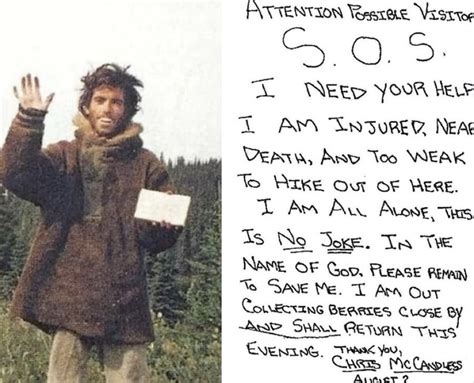 ATTENTION POSSIBLE VISITOR
S.O.S.
I NEED YOUR HELP
I AM INJURED, NEAR
DEATH, AND TOO WEAK
TO HIKE OUT OF HERE.
I AM ALL ALONE, THIS
IS NO JOKE. IN THE
NAME OF GOD, PLEASE REMAIN
TO SAVE ME. I AM OUT
COLLECTING BERRIES CLOSE BY
AND SHALL RETURN THIS
EVENING. THANK YOU,
CHRIS McCANDLESS
AUGUST ?